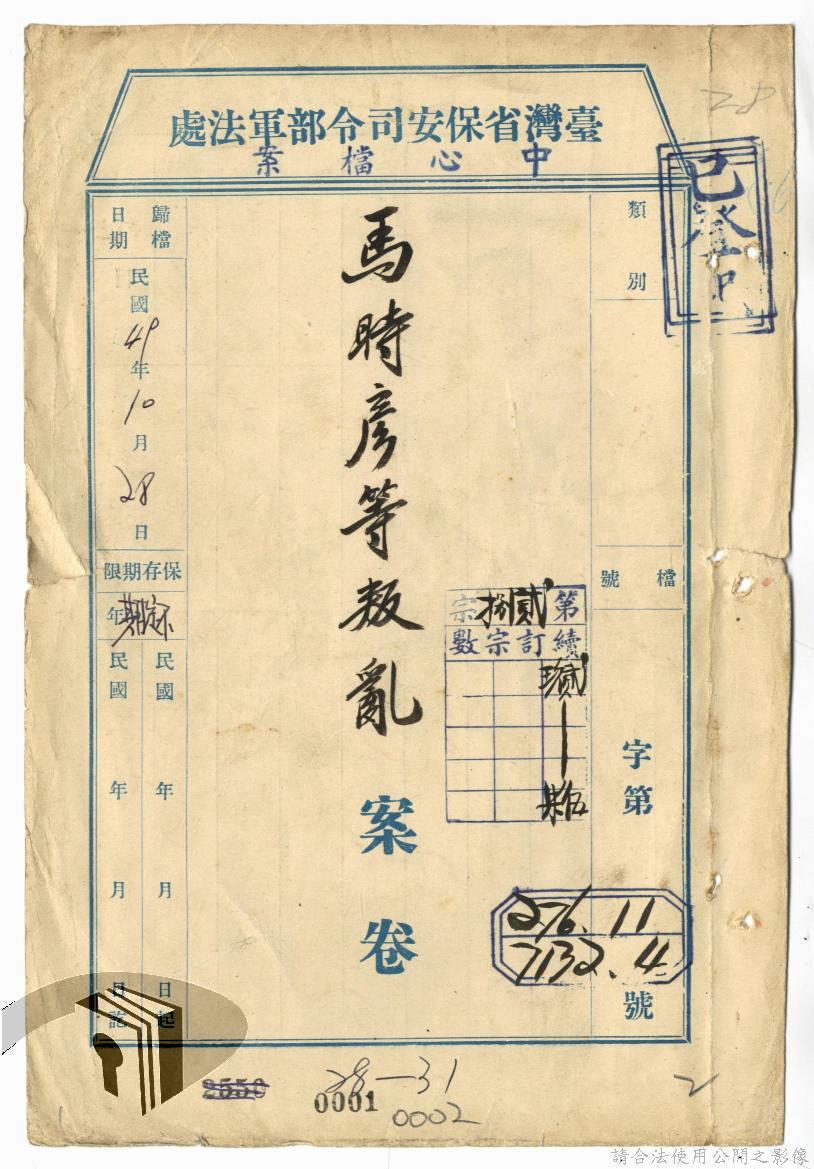 28
臺灣省保安司令部軍法處
中心檔案
已登
類別
檔號
字第
276.11
7132.4
號
第貳捌宗
續訂宗數
馬時彥等叛亂
案卷
歸檔日期
民國49年10月28日
保存期限
年
民國 年 月 日起
民國 年 月 日訖
2550
28-31
0001
0002
2
請合法使用公開之影像